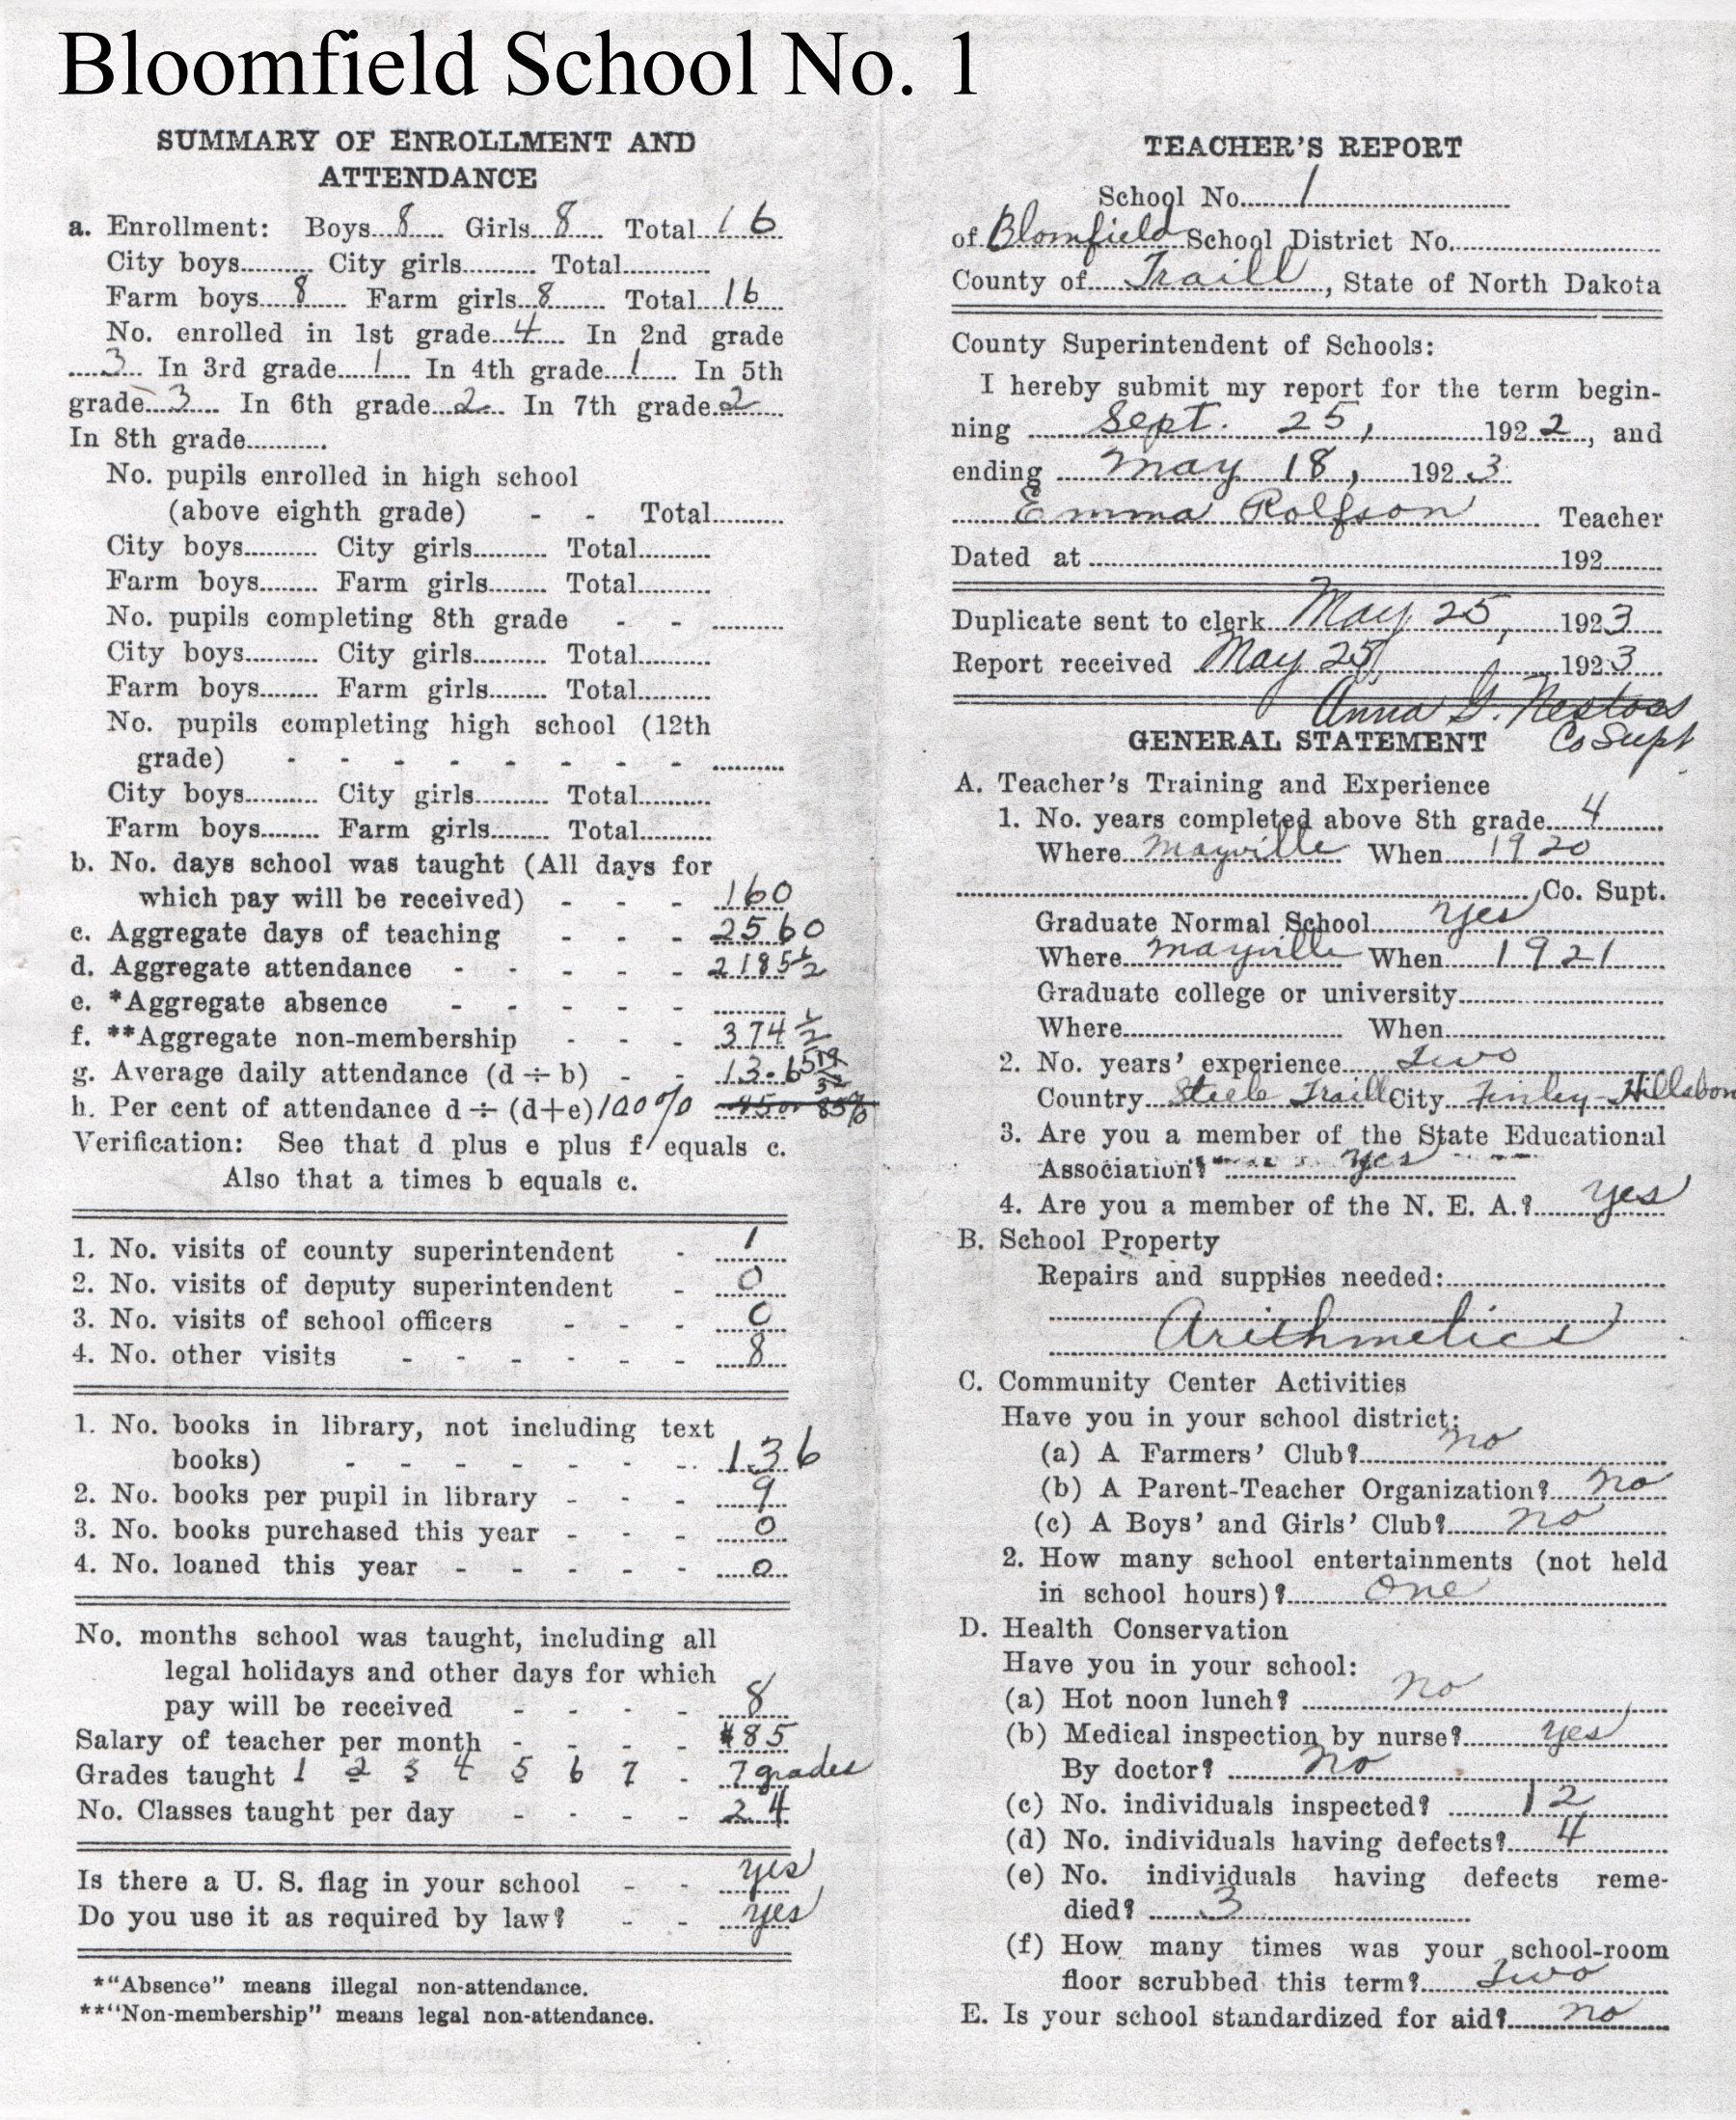 Bloomfield School No. 1
SUMMARY OF ENROLLMENT AND
ATTENDANCE
a. Enrollment: Boys...8.... Girls...8.... Total...16
City boys.......... City girls.......... Total............
Farm boys....8..... Farm girls..8....... Total...16...
No. enrolled in 1st grade...4.... In 2nd grade
.....3... In 3rd grade....1.... In 4th grade...1..... In 5th
grade....3.... In 6th grade...2... In 7th grade.2......
In 8th grade...........
No. pupils enrolled in high school
(above eighth grade) - - Total..........
City boys.......... City girls.......... Total..........
Farm boys........ Farm girls........ Total..........
No. pupils completing 8th grade - - ..........
City boys.......... City girls.......... Total..........
Farm boys........ Farm girls........ Total..........
No. pupils completing high school (12th
grade) - - - - - - - - ..........
City boys.......... City girls.......... Total..........
Farm boys........ Farm girls........ Total..........
b. No. days school was taught (All days for
which pay will be received) - - - 160
c. Aggregate days of teaching - - - 2560
d. Aggregate attendance - - - - - 2185½
e. *Aggregate absence - - - - - ..........
f. **Aggregate non-membership - - - 374½
g. Average daily attendance (d ÷ b) - - 13.65
h. Per cent of attendance d ÷ (d+e) 100% 85%
Verification: See that d plus e plus f equals c.
Also that a times b equals c.
1. No. visits of county superintendent - 1
2. No. visits of deputy superintendent - 0
3. No. visits of school officers - - - 0
4. No. other visits - - - - - - 8
1. No. books in library, not including text
books) - - - - - - - 136
2. No. books per pupil in library - - - 9
3. No. books purchased this year - - - 0
4. No. loaned this year - - - - - 0
No. months school was taught, including all
legal holidays and other days for which
pay will be received - - - - 8
Salary of teacher per month - - - - $85
Grades taught 1 2 3 4 5 6 7 - 7 grades
No. Classes taught per day - - - - 24
Is there a U. S. flag in your school - - yes
Do you use it as required by law? - - yes
*"Absence" means illegal non-attendance.
**"Non-membership" means legal non-attendance.
TEACHER'S REPORT
School No.......1..........................
of Blomfield School District No..............................
County of.....Traill..., State of North Dakota
County Superintendent of Schools:
I hereby submit my report for the term begin-
ning ........Sept. 25,.............1922..., and
ending .....May 18,......1923.
........Emma Rolfson......... Teacher
Dated at ..............................................................192........
Duplicate sent to clerk...May 25,......1923....
Report received May 25,..................1923...
Anna G. Nestoss
Co Supt
GENERAL STATEMENT
A. Teacher's Training and Experience
1. No. years completed above 8th grade.....4.........
Where..Mayville... When.....1920.........
.............................................................................., Co. Supt.
Graduate Normal School.......yes...............
Where..Mayville.. When.....1921......
Graduate college or university............................
Where.............................. When..............................
2. No. years' experience......Two...................
Country...Steele Traill City..Finley-Hillsboro
3. Are you a member of the State Educational
Association? ...............yes.............
4. Are you a member of the N. E. A.?.........yes
B. School Property
Repairs and supplies needed:..............................
Arithmetics
C. Community Center Activities
Have you in your school district:
(a) A Farmers' Club?..........no....................
(b) A Parent-Teacher Organization?.....no
(c) A Boys' and Girls' Club?........no..........
2. How many school entertainments (not held
in school hours)?.........one.......................
D. Health Conservation
Have you in your school:
(a) Hot noon lunch? ..........no.......................
(b) Medical inspection by nurse?.........yes....
By doctor? ..........no................................
(c) No. individuals inspected? .........12.........
(d) No. individuals having defects?......4.........
(e) No. individuals having defects reme-
died? ......3...........................
(f) How many times was your school-room
floor scrubbed this term?......two.........
E. Is your school standardized for aid?......no......